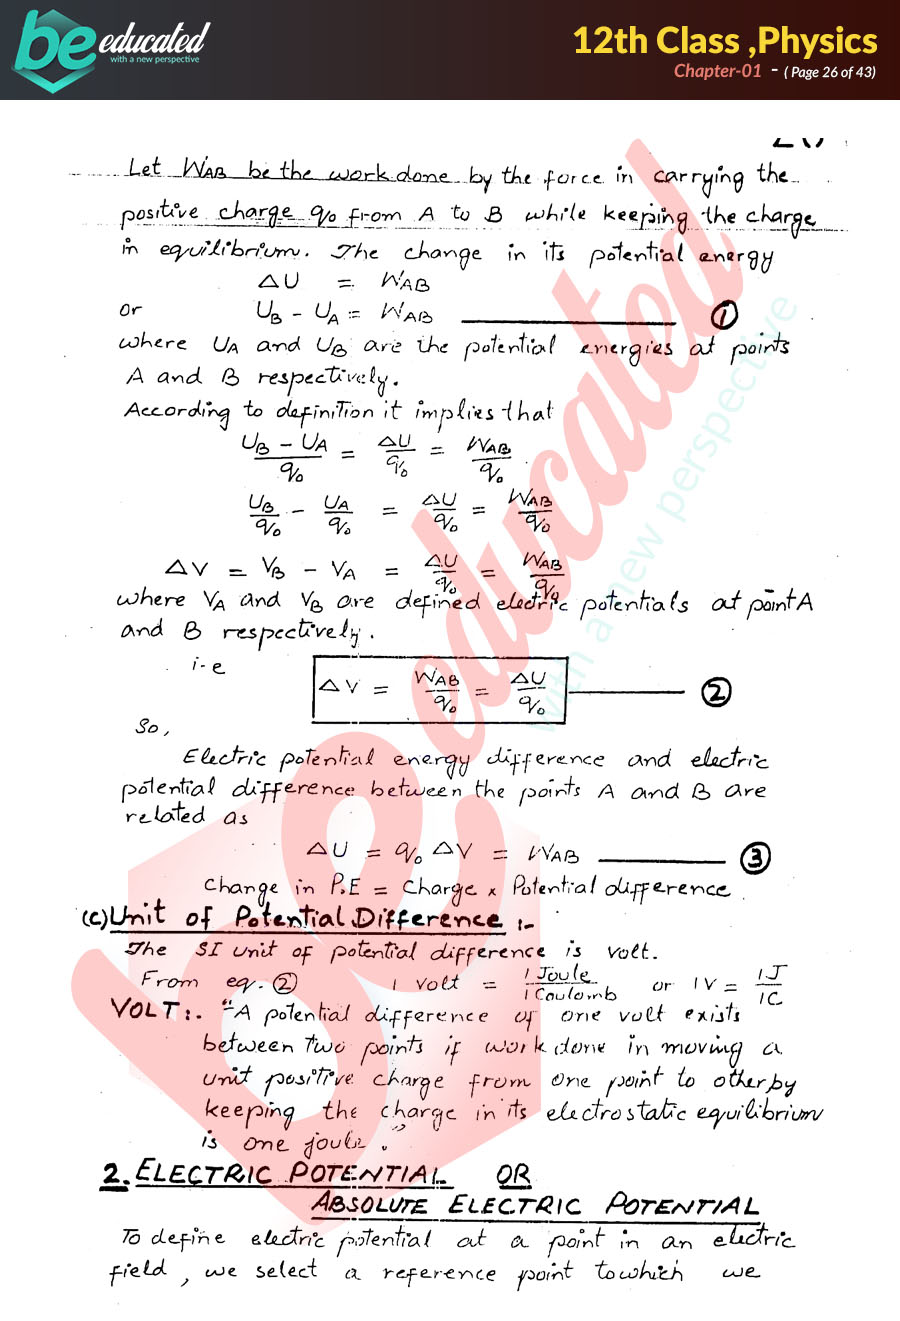 be educated
with a new perspective
12th Class ,Physics
Chapter-01 - ( Page 26 of 43)
Let WAB be the work done by the force in carrying the
positive charge q₀ from A to B while keeping the charge
in equilibrium. The change in its potential energy
ΔU = WAB
or UB - UA = WAB ①
where UA and UB are the potential energies at points
A and B respectively.
According to definition it implies that
(UB - UA)/q₀ = ΔU/q₀ = WAB/q₀
UB/q₀ - UA/q₀ = ΔU/q₀ = WAB/q₀
ΔV = VB - VA = ΔU/q₀ = WAB/q₀
where VA and VB are defined electric potentials at point A
and B respectively.
i-e ΔV = WAB/q₀ = ΔU/q₀ ②
So,
Electric potential energy difference and electric
potential difference between the points A and B are
related as
ΔU = q₀ ΔV = WAB ③
Change in P.E = Charge x Potential difference
(c) Unit of Potential Difference :-
The SI unit of potential difference is volt.
From eq. ② 1 volt = 1 Joule/1 Coulomb or 1V = 1J/1C
VOLT:. "A potential difference of one volt exists
between two points if work done in moving a
unit positive charge from one point to other by
keeping the charge in its electrostatic equilibrium
is one joule."
2. ELECTRIC POTENTIAL OR
ABSOLUTE ELECTRIC POTENTIAL
To define electric potential at a point in an electric
field, we select a reference point to which we
be educated
with a new perspective